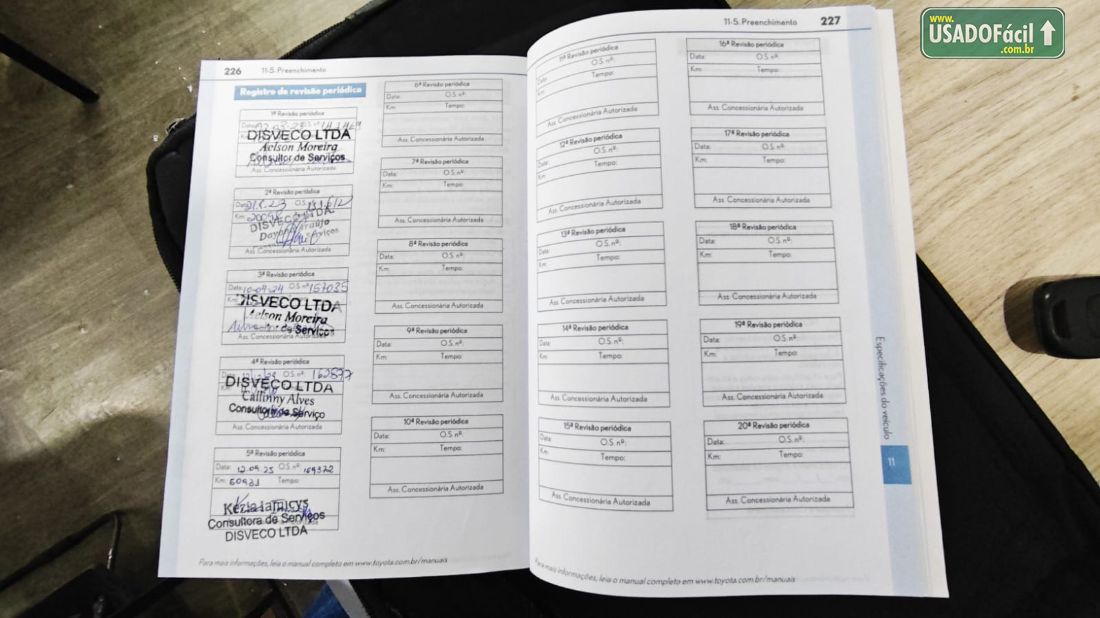 www.
USADOFácil
.com.br
226 11-5. Preenchimento
Registro de revisão periódica
1ª Revisão periódica
Data:
DISVECO LTDA
Aelson Moreira
Consultor de Serviços
Ass. Concessionária Autorizada
2ª Revisão periódica
Data: O.S. nº
Km:
DISVECO LTDA
Ass. Concessionária Autorizada
3ª Revisão periódica
Data: 10.04.24 O.S. nº 157035
Km:
DISVECO LTDA
Aelson Moreira
Consultor de Serviços
Ass. Concessionária Autorizada
4ª Revisão periódica
Data: O.S. nº 162877
DISVECO LTDA
Callinny Alves
Consultora de Serviço
Ass. Concessionária Autorizada
5ª Revisão periódica
Data: 12.04.25 O.S. nº 169372
Km: 50931 Tempo:
Consultora de Serviços
DISVECO LTDA
6ª Revisão periódica
Data: O.S. nº:
Km: Tempo:
Ass. Concessionária Autorizada
7ª Revisão periódica
Data: O.S. nº:
Km: Tempo:
Ass. Concessionária Autorizada
8ª Revisão periódica
Data: O.S. nº:
Km: Tempo:
Ass. Concessionária Autorizada
9ª Revisão periódica
Data: O.S. nº:
Km: Tempo:
Ass. Concessionária Autorizada
10ª Revisão periódica
Data: O.S. nº:
Km: Tempo:
Ass. Concessionária Autorizada
Para mais informações, leia o manual completo em www.toyota.com.br/manuais
11-5. Preenchimento 227
11ª Revisão periódica
Data: O.S. nº:
Km: Tempo:
Ass. Concessionária Autorizada
12ª Revisão periódica
Data: O.S. nº:
Km: Tempo:
Ass. Concessionária Autorizada
13ª Revisão periódica
Data: O.S. nº:
Km: Tempo:
Ass. Concessionária Autorizada
14ª Revisão periódica
Data: O.S. nº:
Km: Tempo:
Ass. Concessionária Autorizada
15ª Revisão periódica
Data: O.S. nº:
Km: Tempo:
Ass. Concessionária Autorizada
16ª Revisão periódica
Data: O.S. nº:
Km: Tempo:
Ass. Concessionária Autorizada
17ª Revisão periódica
Data: O.S. nº:
Km: Tempo:
Ass. Concessionária Autorizada
18ª Revisão periódica
Data: O.S. nº:
Km: Tempo:
Ass. Concessionária Autorizada
19ª Revisão periódica
Data: O.S. nº:
Km: Tempo:
Ass. Concessionária Autorizada
20ª Revisão periódica
Data: O.S. nº:
Km: Tempo:
Ass. Concessionária Autorizada
Especificações do veículo
11
Para mais informações, leia o manual completo em www.toyota.com.br/manuais